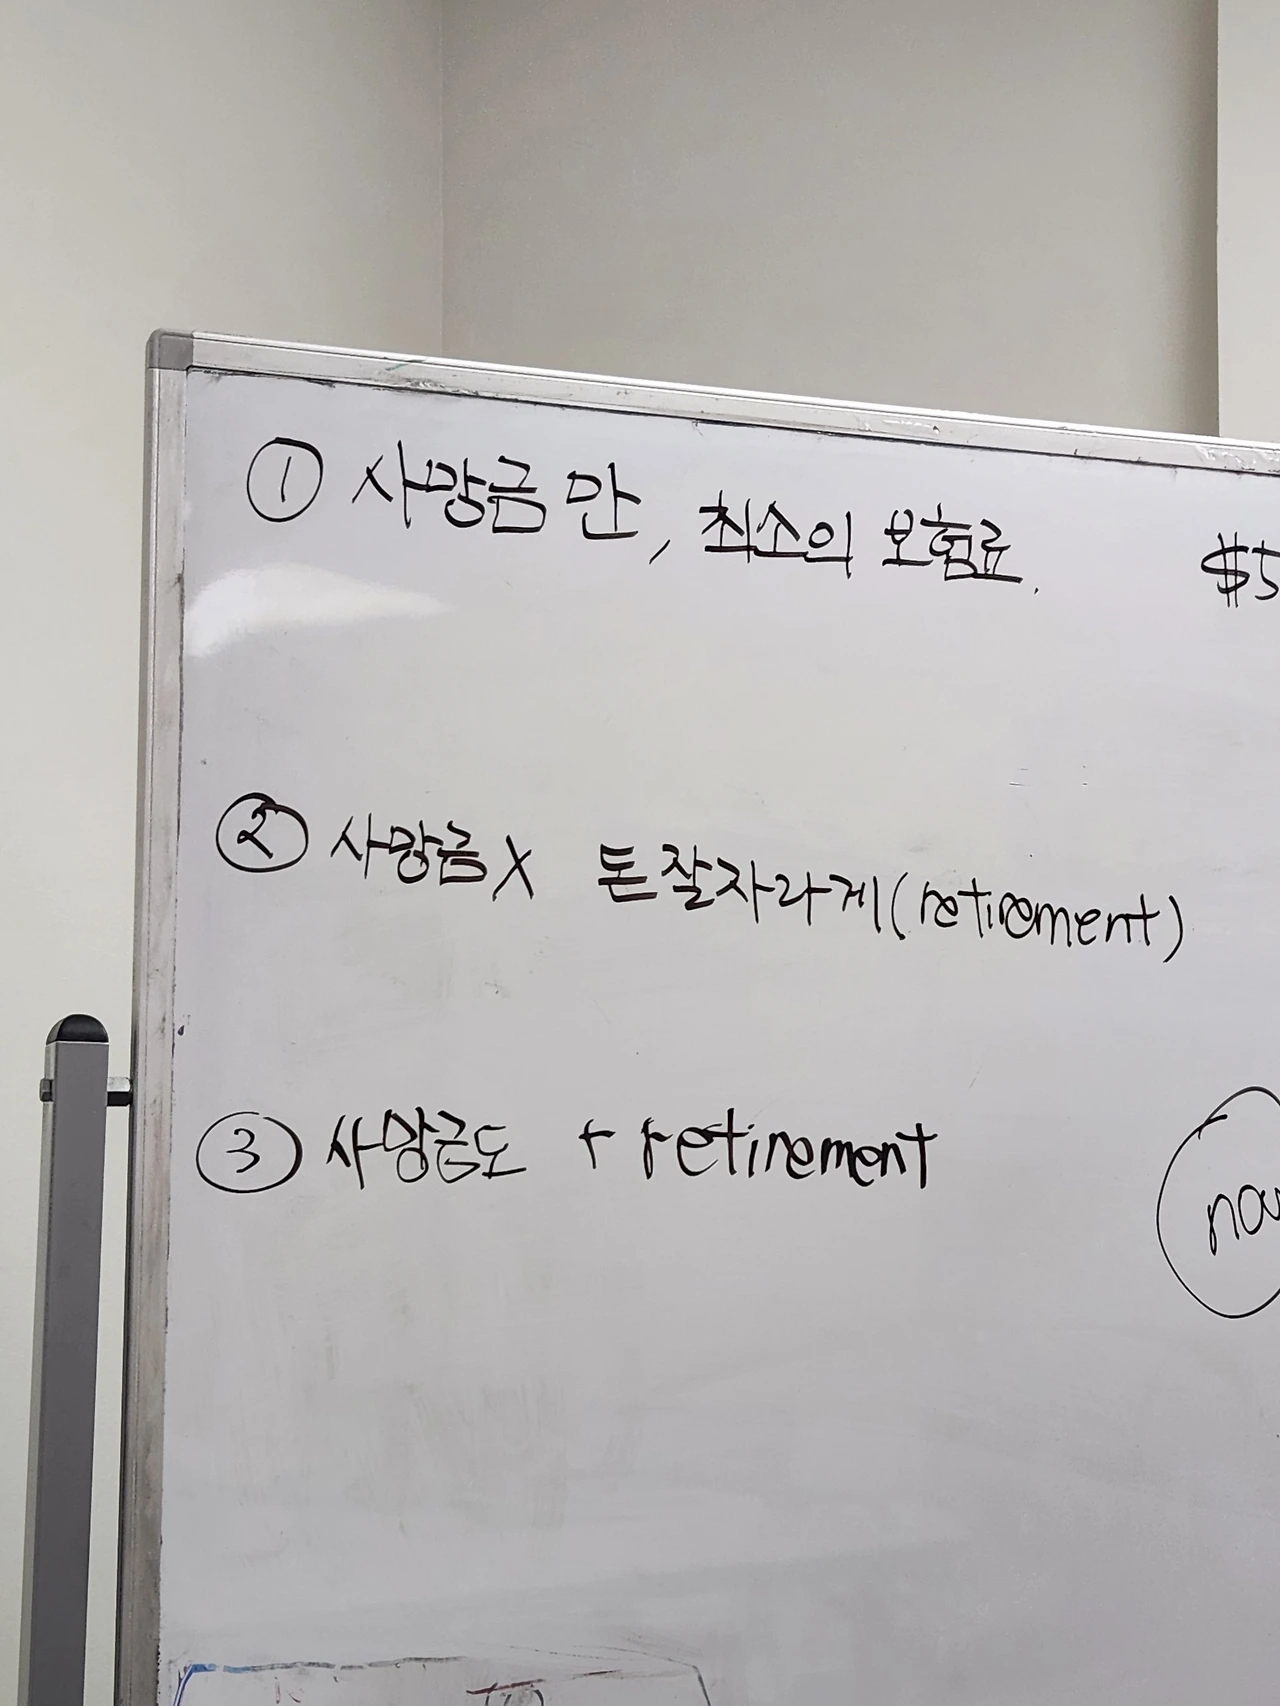 ① 사망금 만, 최소의 보험료. $5
② 사망금 X 돈 잘자라게 (retirement)
③ 사망금도 + retirement